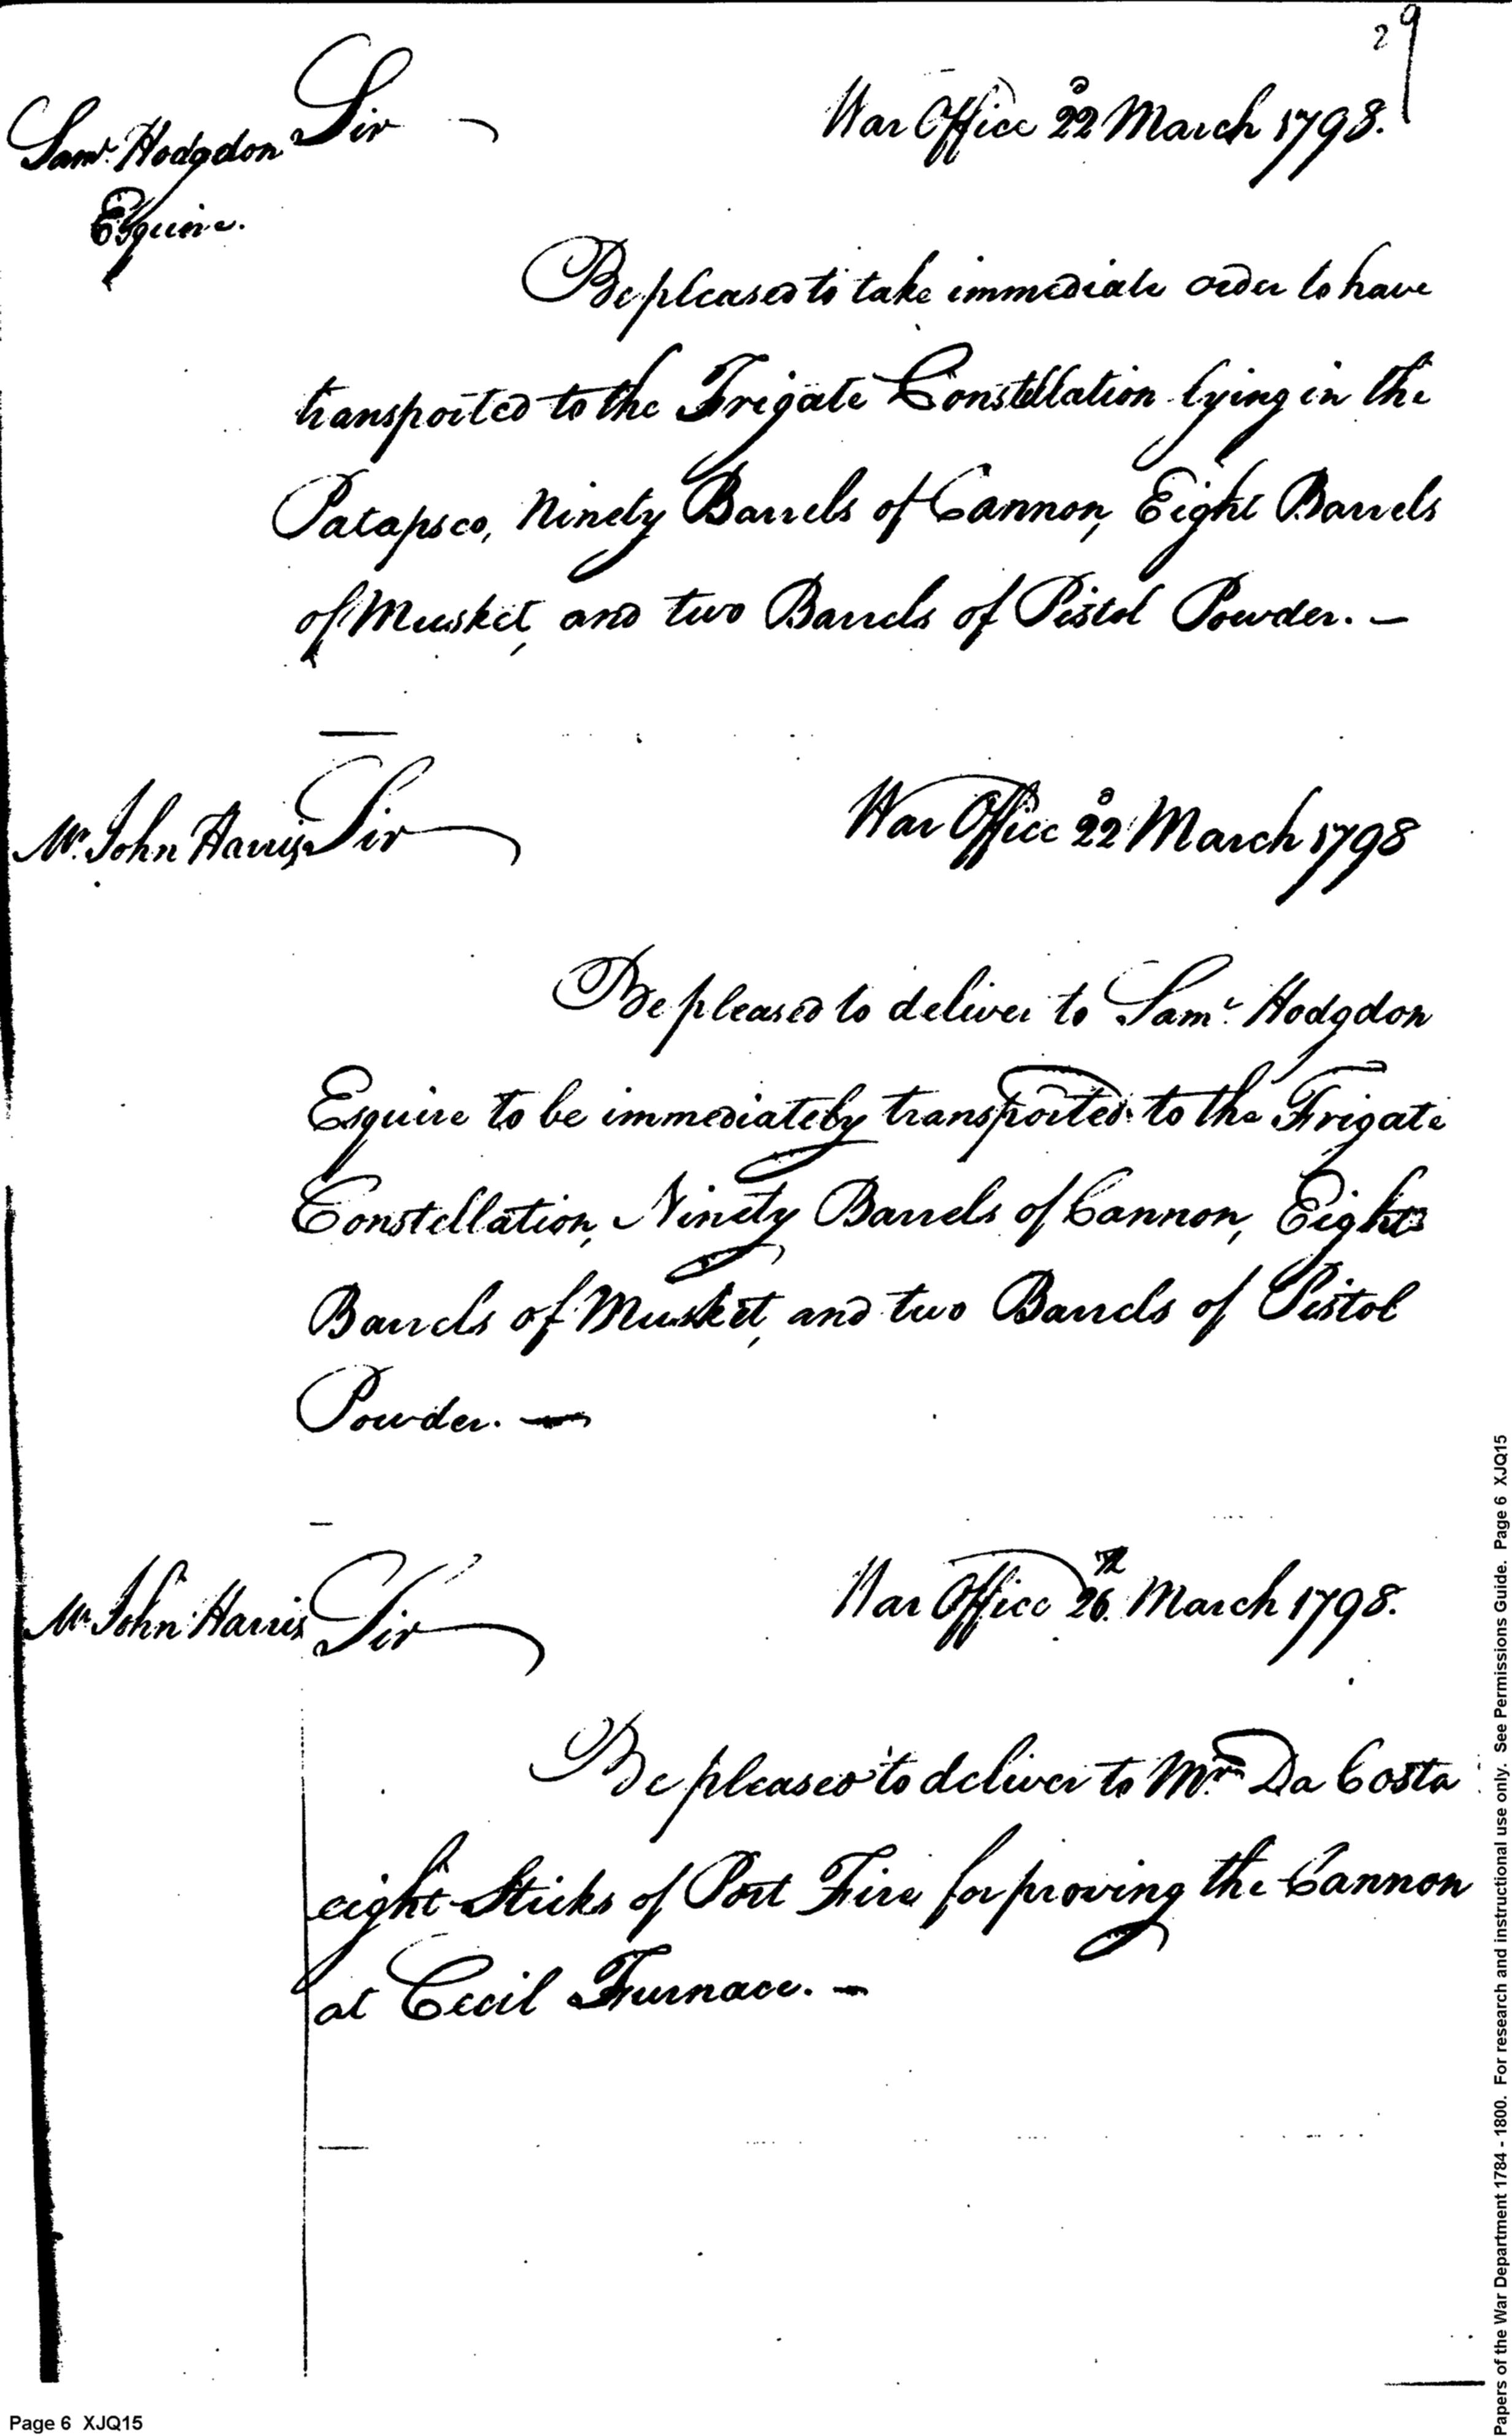 29
Sir War Office 22d March 1798.
Saml. Hodgdon
Esquire.
Be pleased to take immediate order to have
transported to the Frigate Constellation lying in the
Patapsco, Ninety Barrels of Cannon, Eight Barrels
of Musket, and two Barrels of Pistol Powder. —
Mr. John Harris Sir War Office 22d March 1798
Be pleased to deliver to Saml. Hodgdon
Esquire to be immediately transported to the Frigate
Constellation, Ninety Barrels of Cannon, Eight
Barrels of Musket, and two Barrels of Pistol
Powder. —
Mr. John Harris Sir War Office 26th March 1798.
Be pleased to deliver to Mr. Da Costa
eight Sticks of Port Fire for proving the Cannon
at Cecil Furnace. —
Page 6 XJQ15
Papers of the War Department 1784 - 1800. For research and instructional use only. See Permissions Guide. Page 6 XJQ15